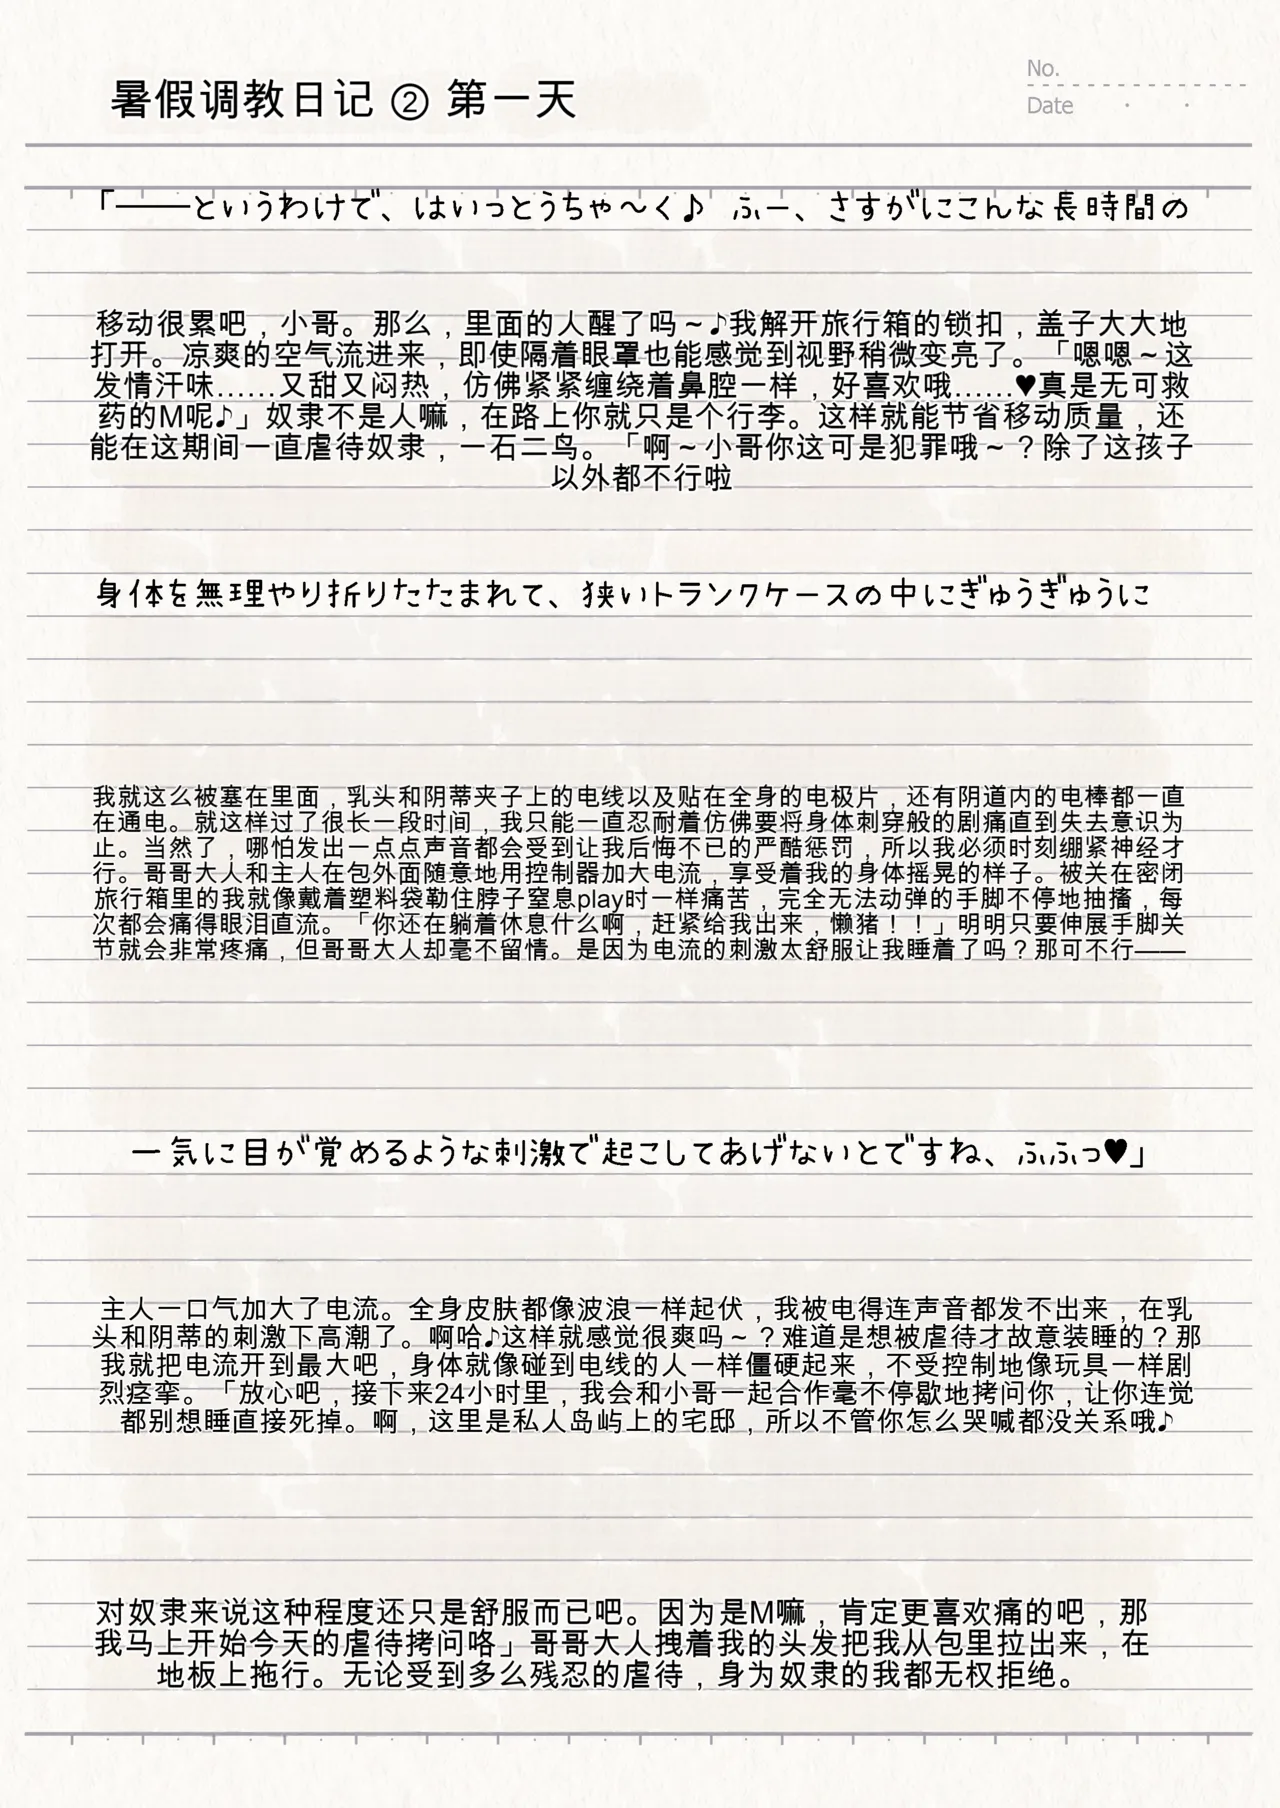 暑假调教日记 ② 第一天
No.
Date
「――というわけで、はいっとうちゃ～く♪ ふー、さすがにこんな長時間の
移动很累吧，小哥。那么，里面的人醒了吗～♪我解开旅行箱的锁扣，盖子大大地
打开。凉爽的空气流进来，即使隔着眼罩也能感觉到视野稍微变亮了。「嗯嗯～这
发情汗味……又甜又闷热，仿佛紧紧缠绕着鼻腔一样，好喜欢哦……♥真是无可救
药的M呢♪」奴隶不是人嘛，在路上你就只是个行李。这样就能节省移动质量，还
能在这期间一直虐待奴隶，一石二鸟。「啊～小哥你这可是犯罪哦～？除了这孩子
以外都不行啦
身体を無理やり折りたたまれて、狭いトランクケースの中にぎゅうぎゅうに
我就这么被塞在里面，乳头和阴蒂夹子上的电线以及贴在全身的电极片，还有阴道内的电棒都一直
在通电。就这样过了很长一段时间，我只能一直忍耐着仿佛要将身体刺穿般的剧痛直到失去意识为
止。当然了，哪怕发出一点点声音都会受到让我后悔不已的严酷惩罚，所以我必须时刻绷紧神经才
行。哥哥大人和主人在包外面随意地用控制器加大电流，享受着我的身体摇晃的样子。被关在密闭
旅行箱里的我就像戴着塑料袋勒住脖子窒息play时一样痛苦，完全无法动弹的手脚不停地抽搐，每
次都会痛得眼泪直流。「你还在躺着休息什么啊，赶紧给我出来，懒猪！！」明明只要伸展手脚关
节就会非常疼痛，但哥哥大人却毫不留情。是因为电流的刺激太舒服让我睡着了吗？那可不行——
一気に目が覚めるような刺激で起こしてあげないとですね、ふふっ♥」
主人一口气加大了电流。全身皮肤都像波浪一样起伏，我被电得连声音都发不出来，在乳
头和阴蒂的刺激下高潮了。啊哈♪这样就感觉很爽吗～？难道是想被虐待才故意装睡的？那
我就把电流开到最大吧，身体就像碰到电线的人一样僵硬起来，不受控制地像玩具一样剧
烈痉挛。「放心吧，接下来24小时里，我会和小哥一起合作毫不停歇地拷问你，让你连觉
都别想睡直接死掉。啊，这里是私人岛屿上的宅邸，所以不管你怎么哭喊都没关系哦♪
对奴隶来说这种程度还只是舒服而已吧。因为是M嘛，肯定更喜欢痛的吧，那
我马上开始今天的虐待拷问咯」哥哥大人拽着我的头发把我从包里拉出来，在
地板上拖行。无论受到多么残忍的虐待，身为奴隶的我都无权拒绝。